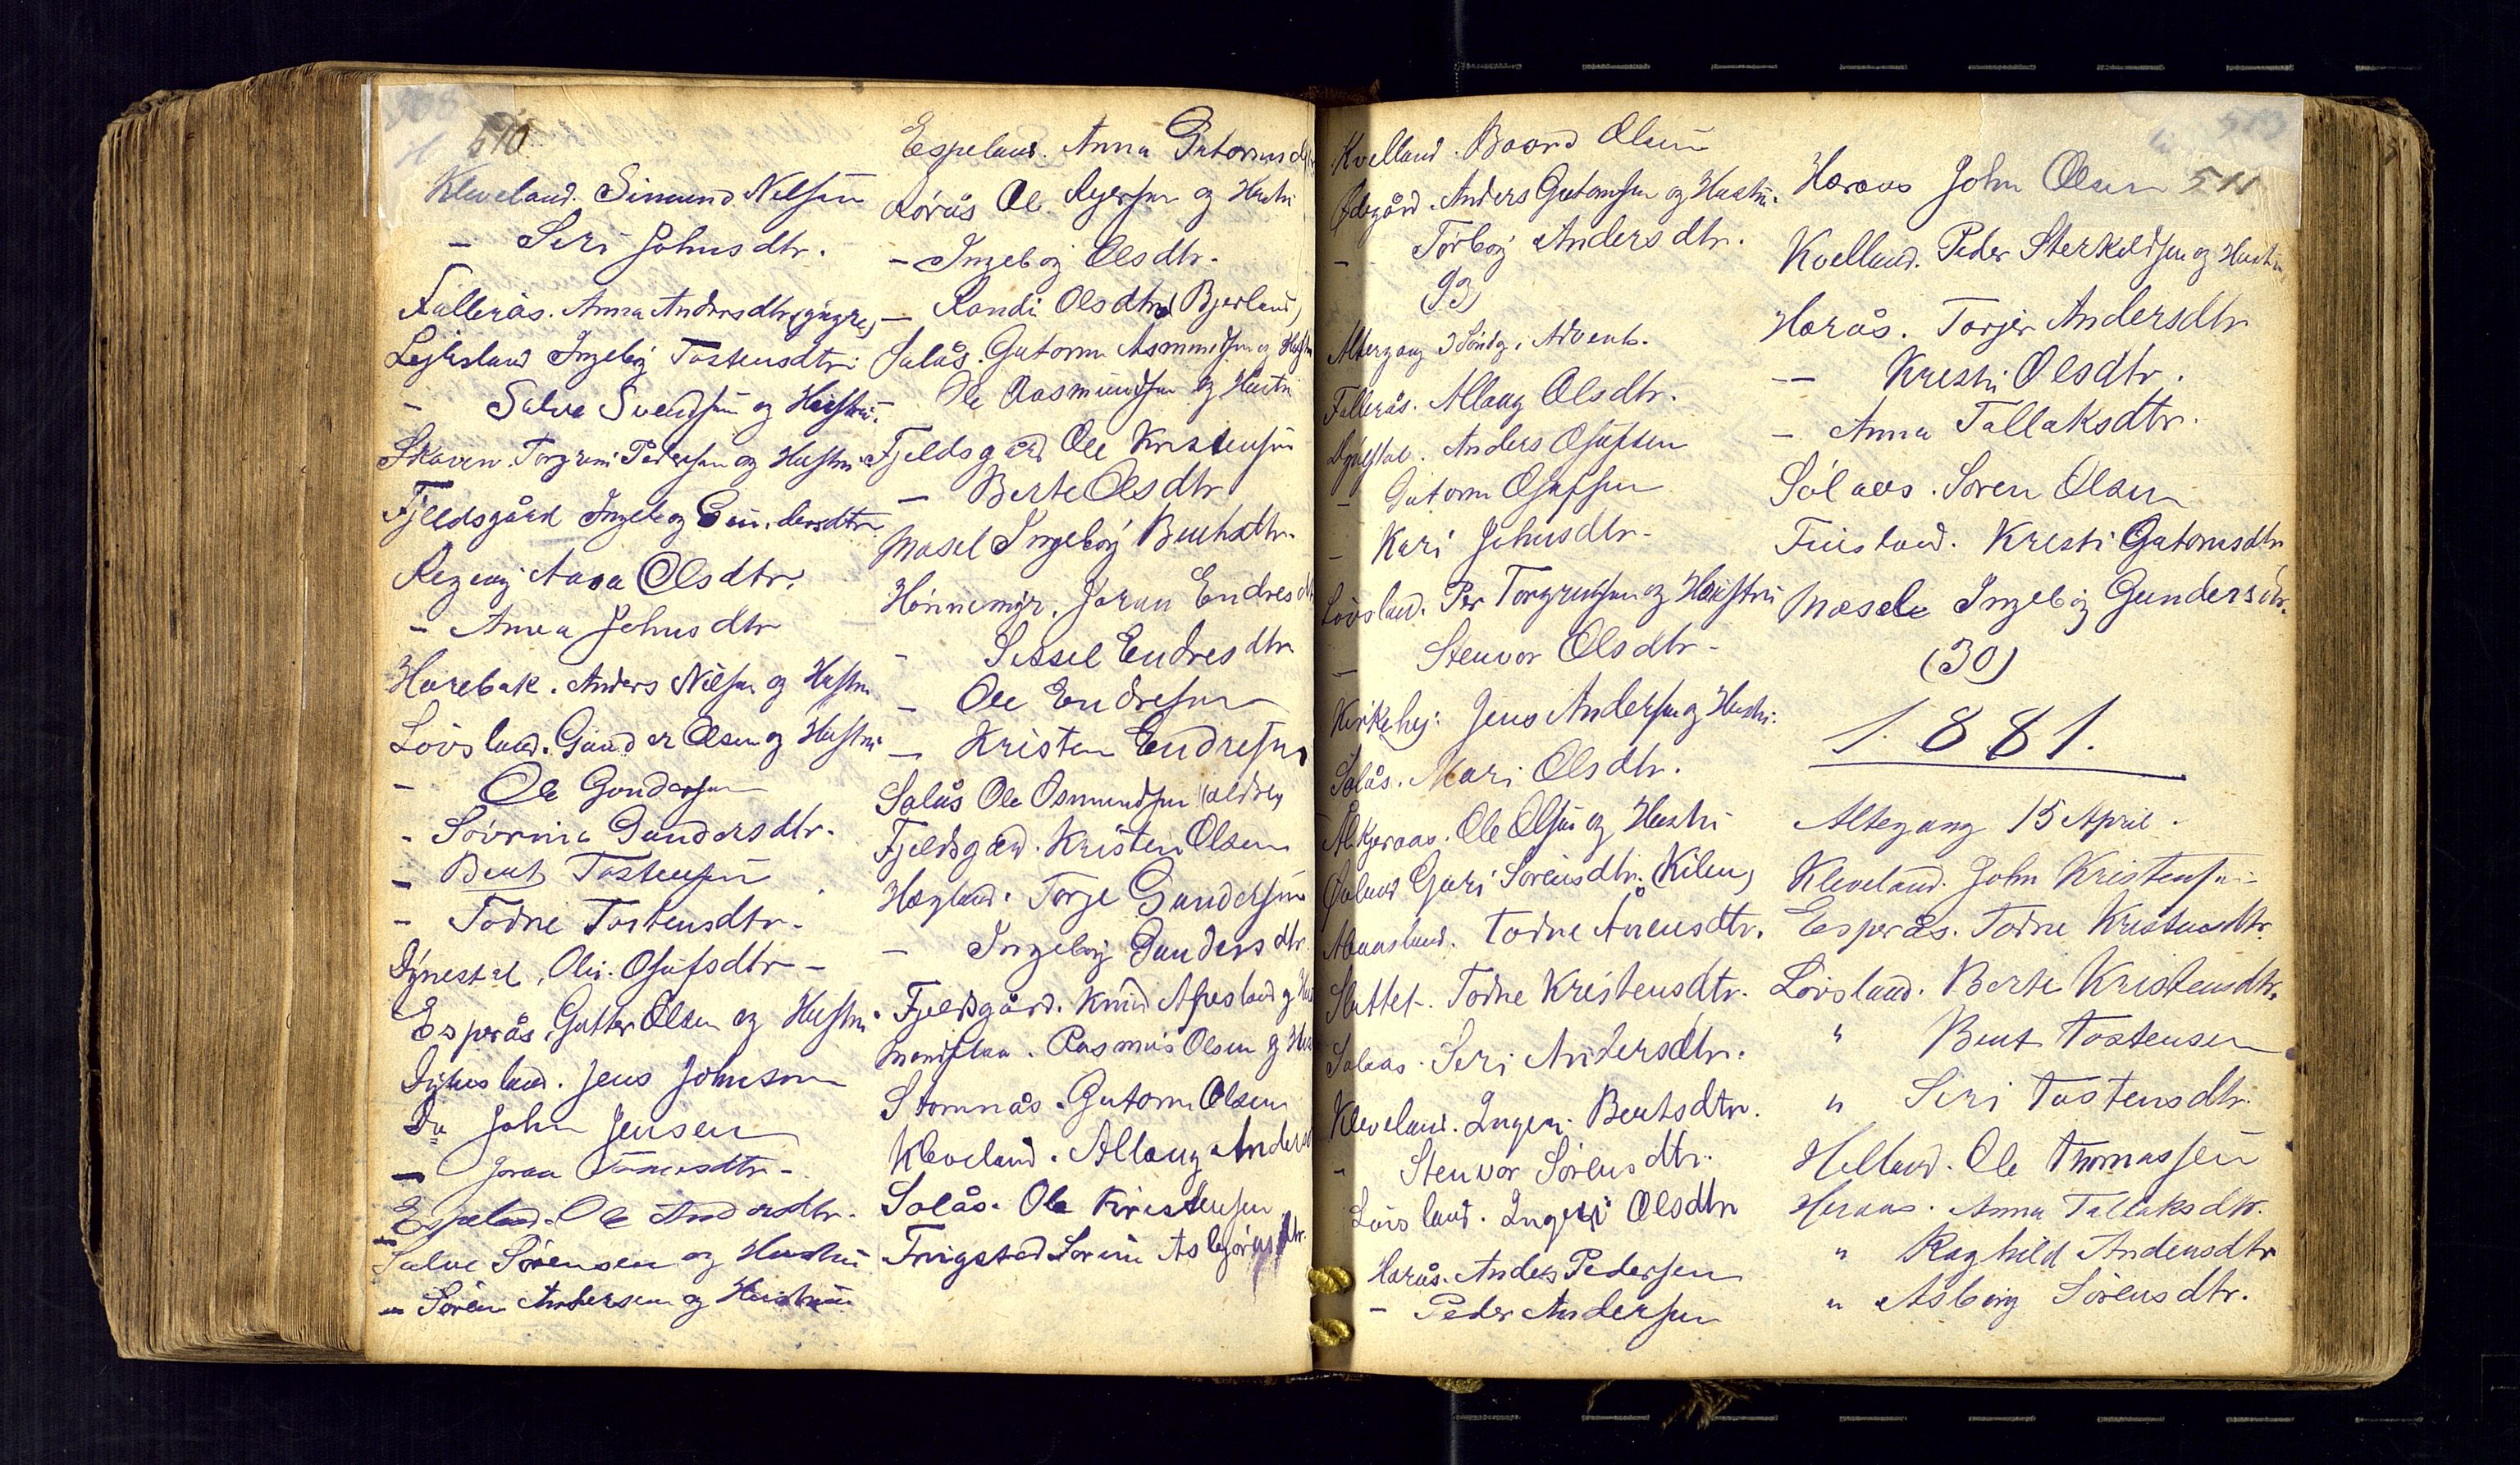 510
Kleveland. Simund Nelsen
— Siri Johnsdtr.
Fallerås. Anna Andersdtr (yngre)
Lejlisland Ingeb̄g Tostensdtr.
— Salve Svendsen og Hustru.
Skoven. Torgrim Pedersen og Hustru
Fjeldsgård Ingeb og Gundersdtr
Aasa Olsdtr.
— Anna Johnsdtr
Harebak. Anders Nilsen og Hustru
Lövsland. Gunder Olsen og Hustru
— Ole Gundersen
- Sörine Gundersdtr.
— Bent Tostensen
- Todne Tostensdtr.
Dynestøl. Olufsdtr —
Esperås. Gutter Olsen og Hustru
Jens Johnsen
Do John Jensen
— Joraa
Espeland. Ole Andersdtr.
Salve Sörensen og Hustru
— Sören Andersen og Hustru
Espeland. Anna Gutormsdtr
Röräs Ol. Reyersen og Hustru
— Ingebōg Olsdtr.
— Randi Olsdtr (Bjerland)
Salås. Gutorm Asmundsen og Hustru
Ole Aasmundsen og Hustru
Fjeldsgård Ole Kristensen
— Berte Olsdtr
Mosel Ingebōg Bentsdtr.
Hönnemyr. Joran Endresdtr
— Sissel Endresdtr
— Ole Endresen
— Kristen Endresen
Salås Ole Osmundsen (ældre)
Fjeldsgård. Kristen Olsen
Hægland. Torje Gundersen
— Ingebōg Gundersdtr.
Fjeldsgård. Knud Åpesland og Hust
Monseplan. Rasmus Olsen og Hus
Stomnås. Gutorm Olsen
Kleveland. Allaug Anders
Salås. Ole Kristensen
Frigstad Sörine Asbjörnsdtr.
Kvelland. Baard Olsen
Ödegård. Anders Gutormsen og Hustru.
— Torbōg Andersdtr.
93)
Altergang 3 Söndg i Advent.
Fallerås. Allaug Olsdtr.
Dynestøl. Anders Olufsen
— Gutorm Olufsen
— Kari Johnsdtr.
Lövsland. Per Torgrimsen og Hustru
— Stenvor Olsdtr.
Kirkehej. Jens Andersen og Hustru.
Salås. Mari Olsdtr.
Ålkjeraas. Ole Olsen og Hustru
Öiland Guri Sörensdtr. (Kilen)
Abuansland. Todne Ånensdtr.
Slettet. Todne Kristensdtr.
Salaas. Siri Andersdtr.
Kleveland. Inger. Bentsdtr.
" Stenvor Sörensdtr.
Lövsland. Inger Olsdtr
Harås. Anders Pedersen
— Peder Andersen
511
Haraas John Olsen
Kvelland. Peder Sterkeldsen og Hustru
Harås. Torjer Andersdtr
— Kristi Olsdtr.
— Anna Tallaksdtr.
Sölaas. Sören Olsen
Fuisland. Kristi Gutormsdtr
Mosele Ingebōg Gundersdtr.
(30)
1881.
Altegang 15 April.
Kleveland. John Kristensen
Esperås. Todne Kristensdtr.
Lövsland. Berte Kristensdtr.
" Bent Tostensen
" Siri Tostensdtr.
Helland. Ole Thomassen
Haraas. Anna Tallaksdtr.
" Raghild Andersdtr
" Asbōrg Sörensdtr.